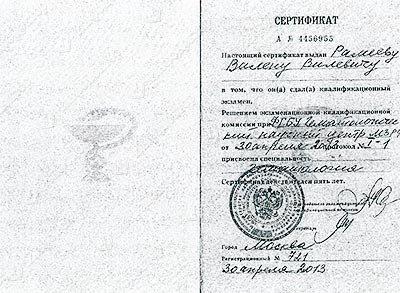 СЕРТИФИКАТ
А № 4456955
Настоящий сертификат выдан Рамееву
Вилену Вилевичу
в том, что он(а) сдал(а) квалификационный
экзамен.
Решением экзаменационной квалификационной
комиссии при ФГБУ Гематологичес-
кий научный центр МЗРФ
от 30 апреля протокол № 1
присвоена специальность
гематология
Сертификат действителен пять лет.
Город Москва
Регистрационный № 721
30 апреля 2013